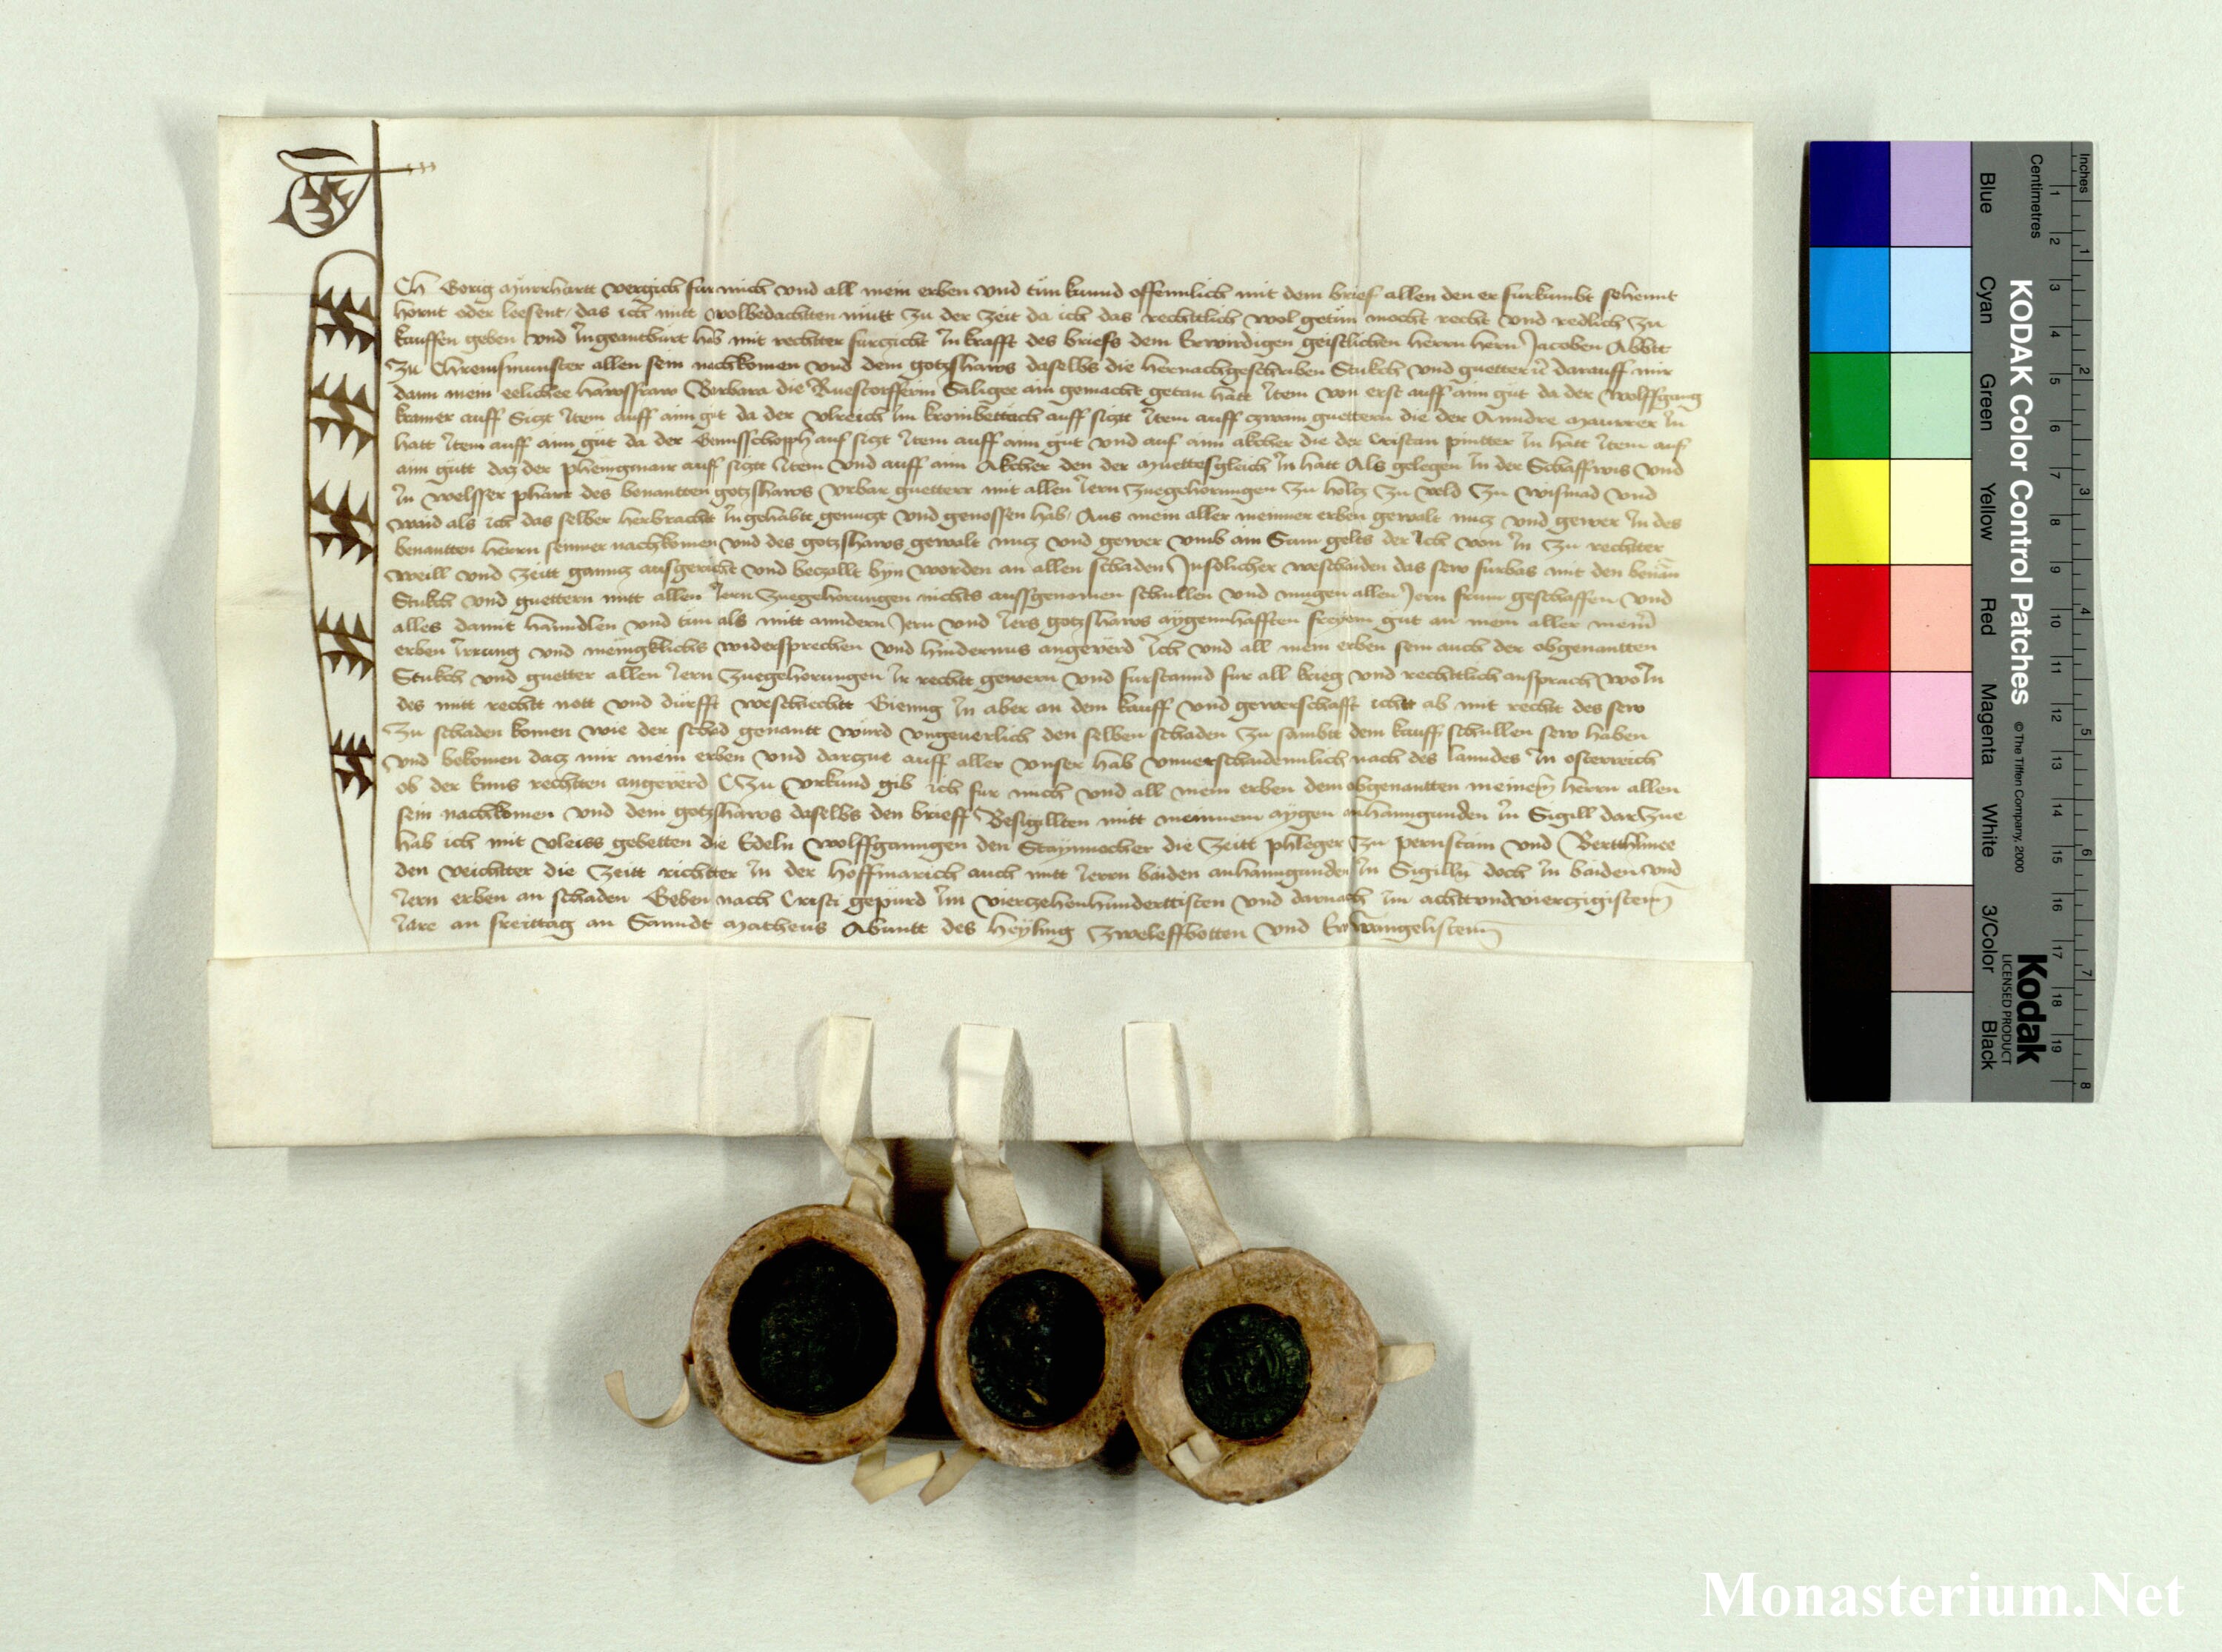 Ich Gorig Murrhartt vergich fur mich vnd all mein erben vnd tun kunnd offennlich mit dem brief allen den er furkumbt sehennt
hornt oder lesent das ich mitt wolbedachtten mutt zu der zeit da ich das rechttlich wol getun mocht recht vnd redlich zu
kauffen geben vnd Ingeantburt hab mit rechtter furczicht In krafft des briefs dem Erwirdigen geistlichen herrn hern Jacoben Abbtt
Zu Chremsmunster allen sein nachkomen vnd dem gotzshaws daselbs die hernachgeschriben Stukch vnd guetter darauff mir
dann mein eelichee hawsfraw Barbara die Ruestorfferin Saligee ain gemacht getan hatt Item von erst auff aim gut da der Wolffgang
kramer auff Siczt Item auff aim gut da der Vlreich Im auff siczt Item auff czwain guettern die der Anndre Maurrer In
hatt Item auff aim gut da der auf siczt Item auff aim gut vnd auf aim akcher die der Cristan pintter In hatt Item auf
aim gutt daz der auff siczt Item vnd auff aim Akcher den der In hatt Als gelegen In der Schaffwis vnd
In Welsser pharr des benantten gotzshaws vrbar guetter mit allen Iern zuegehorungen zu holcz zu veld zu wismad vnd
waid als ich das selber herbracht Ingehabtt genuczt vnd genossen hab Aus mein aller meinner erben gewalt nucz vnd gewer In des
benantten herrn seinner nachkomen vnd des gotzshaws gewalt nucz vnd gewer vmb ain Sum gelts der Ich von In zu rechtter
weill vnd zeitt ganncz ausgericht vnd beczallt byn worden an allen schaden Insolicher weschaiden das sew furbas mit den benan
Stukch vnd guettern mitt allen Iern zuegehorungen nichts aussgenomen schullen vnd mugen allen Iern frum geschaffen vnd
alles damit hanndlen vnd tun als mitt anndern Iern vnd Iers gotzshaws aygennhafften freyem gut an mein aller meinr
erben Irrung vnd menigklichs widersprechen vnd hindernus angeuerd Ich vnd all mein erben sein auch der obgenantten
Stukch vnd guetter allen Iern zuegehorungen Ir rechtt gewern vnd furstannd fur all krieg vnd rechttlich ansprach wo In
des mitt rechtt nott vnd durfft weschiechtt Gieng In aber an dem kauff vnd gewerschafft ichtt ab mit recht des sew
zu schaden komen wie der schad genantt wurd vngeuerlich den selben schaden zu sambtt dem kauff schullen sew haben
vnd bekomen dacz mir mein erben vnd darczue auff aller vnser hab vnuerschaidennlich nach des lanndes In osterreich
ob der Enns rechtten angeuerd Zu vrkund gib ich fur mich vnd all mein erben dem obgenantten meinem herrn allen
sein nachkomen vnd dem gotzshaws daselbs den brieff Besigillten mitt meinnem aygen anhanngunden In Sigill darzue
hab ich mit vleiss gebetten die Edeln Wolffganngen den die zeitt phleger zu pernstain vnd
den die zeitt richtter In der hoffmarich auch mitt Ierrn baiden anhanngunden In Sigilln doch In baiden vnd
Iern erben an schaden Geben nach Cristi gepurd Im vierczehenhunderttisten vnd darnach Im achttvndvierczigistem
Iare an freittag an Sanndt Matheus Abuntt des Heyling zweleffbotten vnd Ewangelistem
KODAK Color Control Patches © The Tiffen Company, 2000
Kodak
LICENSED PRODUCT
Inches 1 2 3 4 5 6 7 8
Centimetres 1 2 3 4 5 6 7 8 9 10 11 12 13 14 15 16 17 18 19
Blue Cyan Green Yellow Red Magenta White 3/Color Black
Monasterium.Net